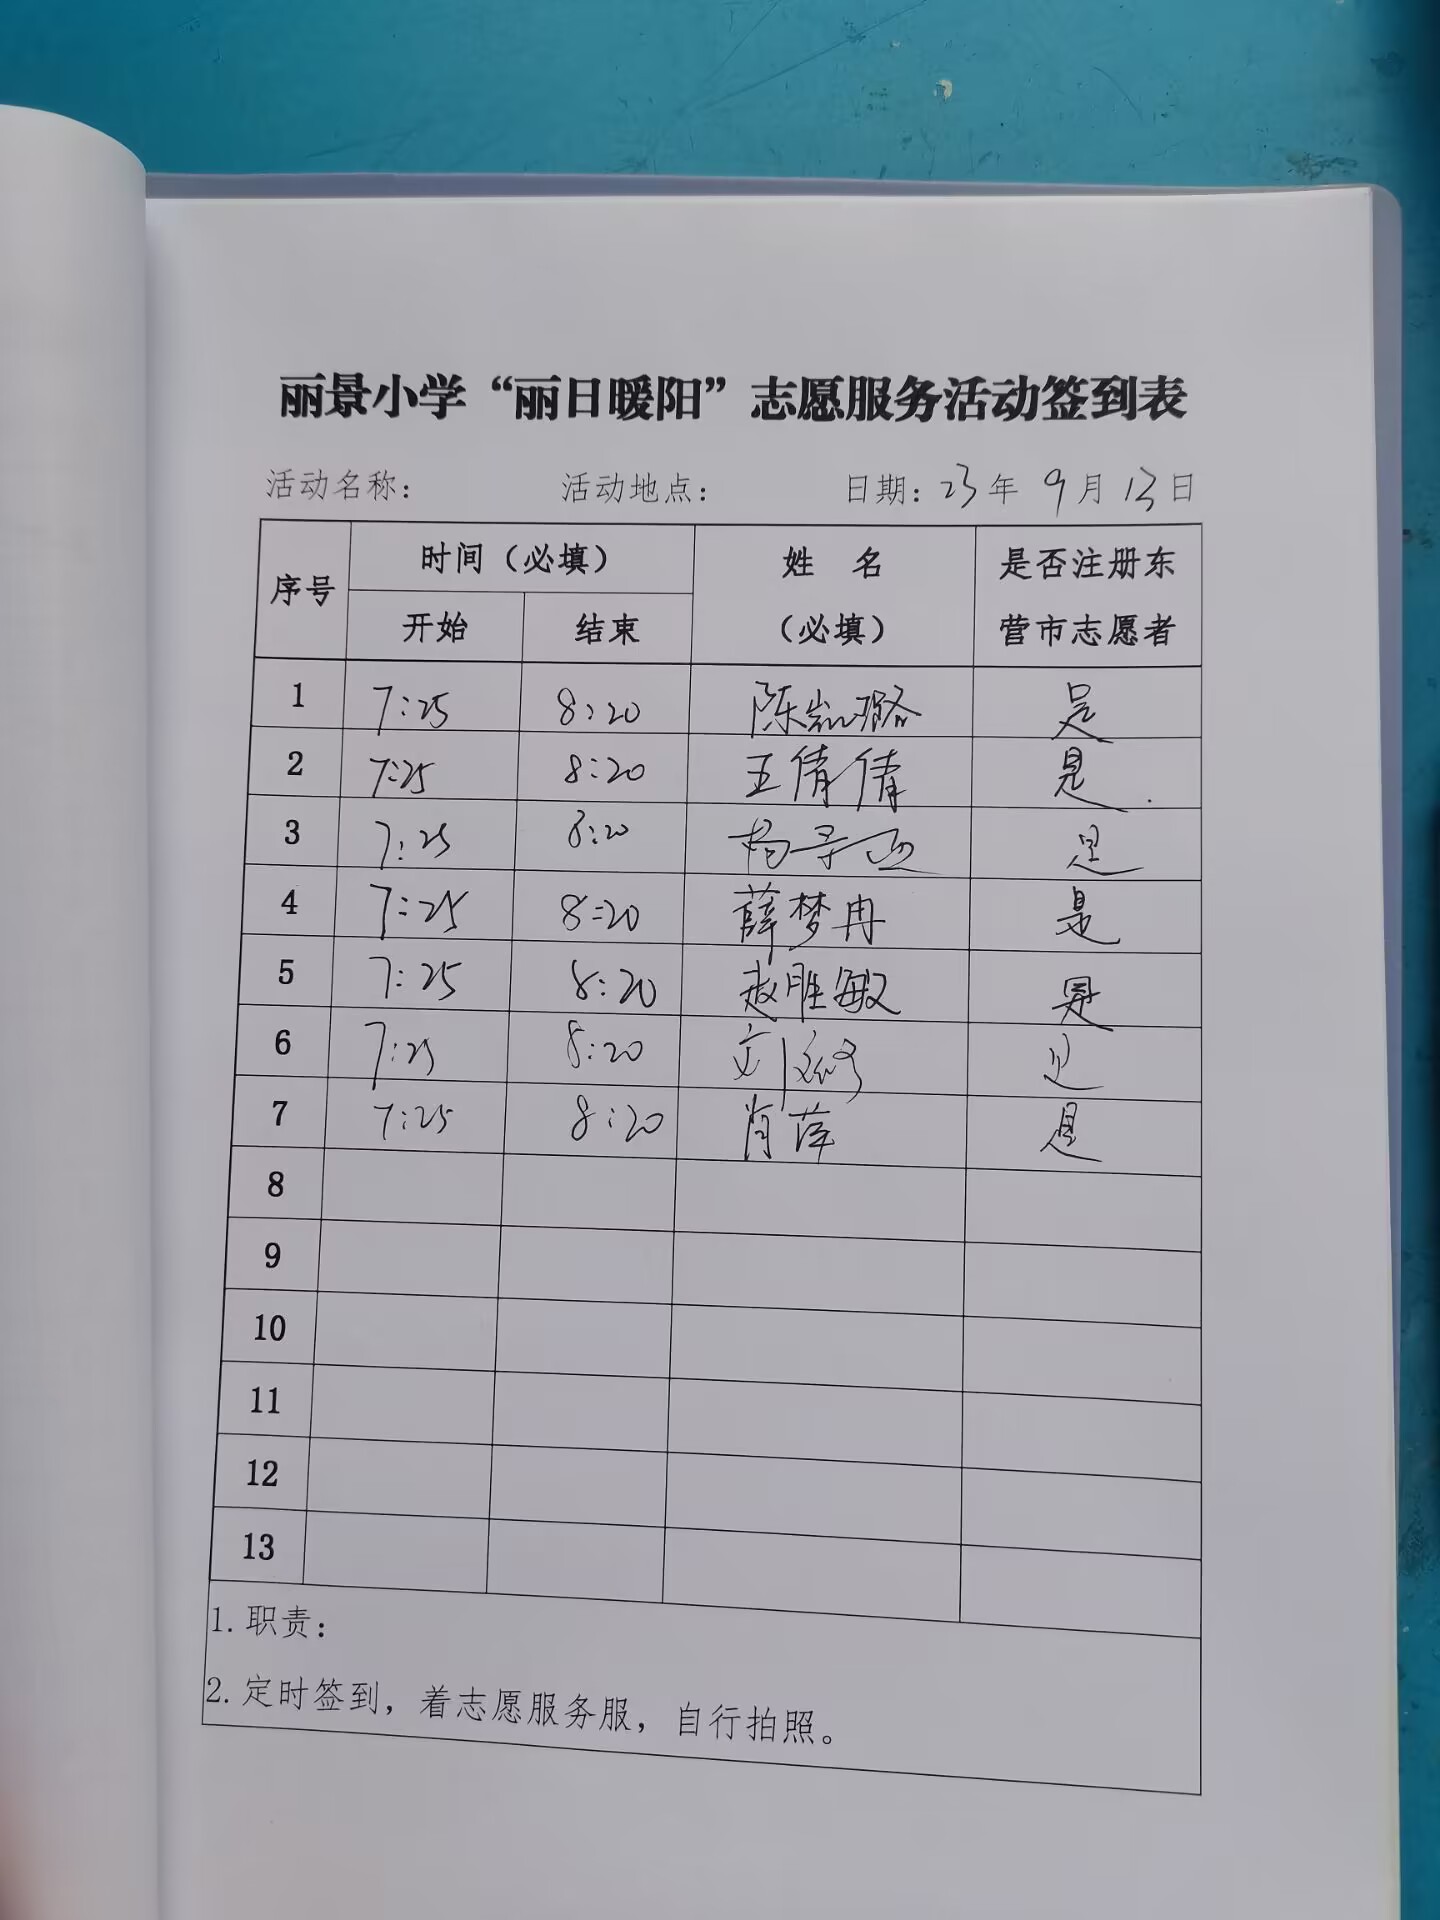 丽景小学“丽日暖阳”志愿服务活动签到表
活动名称: 活动地点: 日期: 23 年 9 月 13 日
序号 时间（必填） 姓 名 是否注册东
开始 结束 （必填） 营市志愿者
1 7:25 8:20 陈凯璐 是
2 7:25 8:20 王倩倩 是
3 7:25 8:20 是
4 7:25 8:20 薛梦冉 是
5 7:25 8:20 赵胜敏 是
6 7:25 8:20 是
7 7:25 8:20 肖萍 是
8
9
10
11
12
13
1. 职责:
2. 定时签到，着志愿服务服，自行拍照。